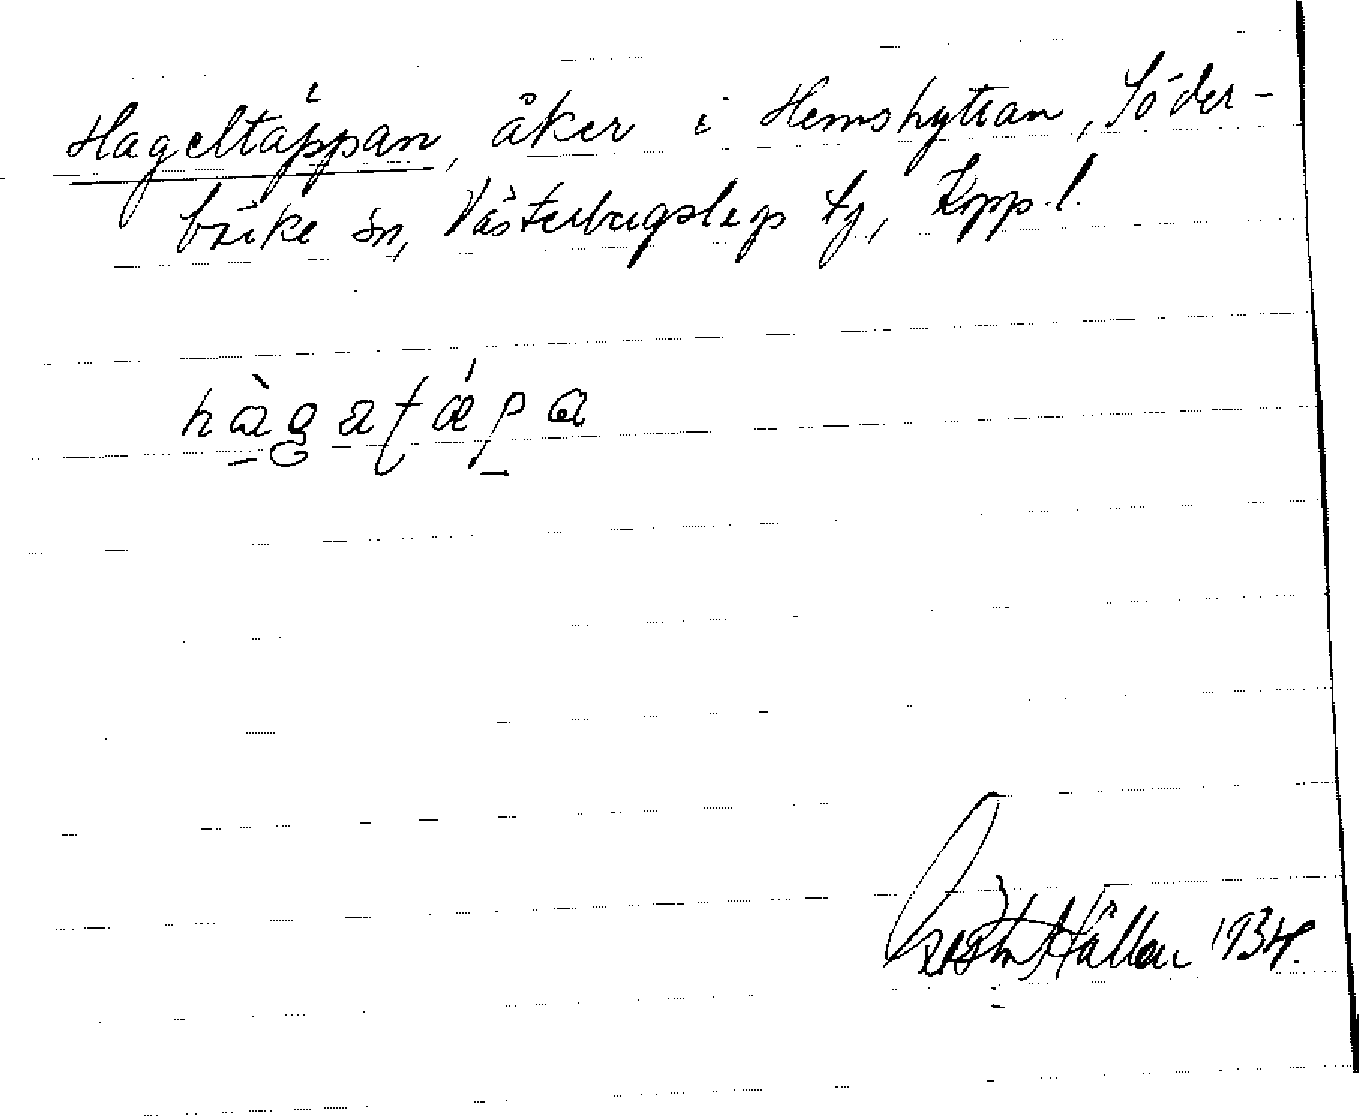 Hageltäppan, åker i Hemshyttan, Söder-
bärke sn, Västerbergslags tg, Kopp. l.
hàgatǽpa
Hållan 1934.